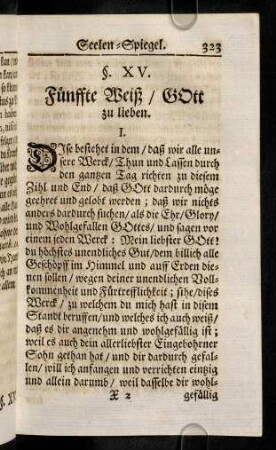 Seelen-Spiegel. 323
§. XV.
Fünffte Weiß / GOtt
zu lieben.
I.
DIse bestehet in dem / daß wir alle un-
sere Werck / Thun und Lassen durch
den gantzen Tag richten zu diesem
Zihl und End / daß GOtt dardurch möge
geehret und gelobt werden ; daß wir nichts
anders dardurch suchen / als die Ehr / Glory /
und Wohlgefallen GOttes / und sagen vor
einem jeden Werck : Mein liebster GOtt !
du höchstes unendliches Gut / dem billich alle
Geschöpff im Himmel und auff Erden die-
nen sollen / wegen deiner unendlichen Voll-
kommenheit und Fürtrefflichkeit ; sihe / dises
Werck / zu welchem du mich hast in disem
Standt beruffen / und welches ich auch weiß /
daß es dir angenehm und wohlgefällig ist ;
weil es auch dein allerliebster Eingebohrner
Sohn gethan hat / und dir dardurch gefal-
len / will ich anfangen und verrichten eintzig
und allein darumb / weil dasselbe dir wohl-
X 2 gefällig